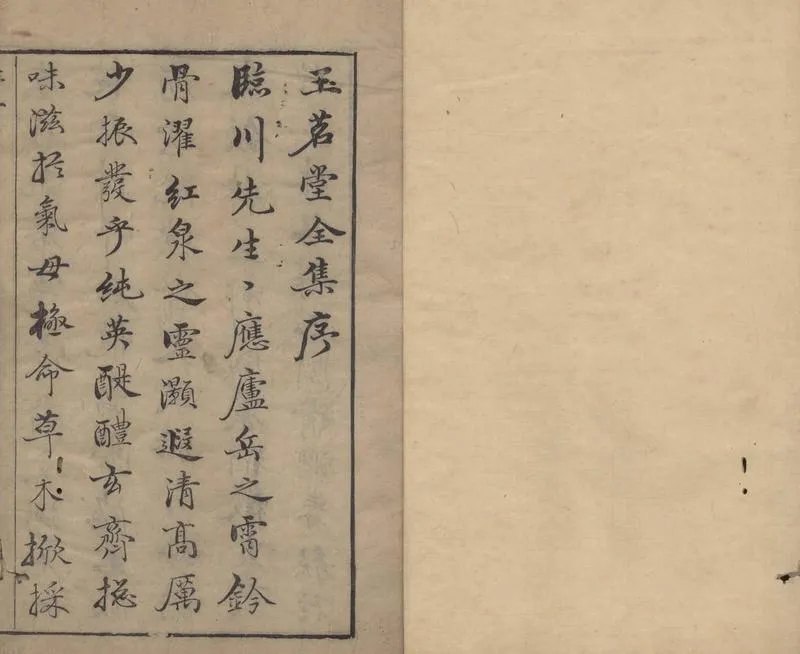 玉茗堂全集序
臨川先生、應廬岳之霄鈐
骨濯紅泉之靈灝遐清高厲
少振發乎純英醍醴玄齋摠
味滋扵氣母極命草木掀採